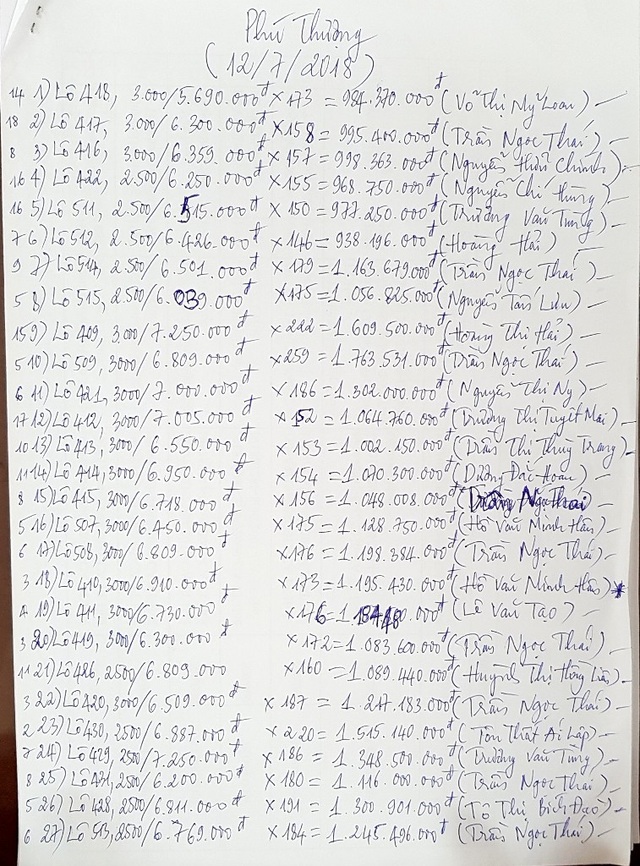 Phú Thượng
(12/7/2018)
14 1) Lô 418, 3.000/5.690.000đ × 173 = 984.370.000đ (Võ Thị Mỹ Loan) –
18 2) Lô 417, 3.000/6.300.000đ × 158 = 995.400.000đ (Trần Ngọc Thái) –
8 3) Lô 416, 3.000/6.359.000đ × 157 = 998.363.000đ (Nguyễn Hữu Chinh) –
16 4) Lô 422, 2.500/6.250.000đ × 155 = 968.750.000đ (Nguyễn Chí Hùng) –
16 5) Lô 511, 2.500/6.515.000đ × 150 = 977.250.000đ (Trương Văn Tùng) –
7 6) Lô 512, 2.500/6.426.000đ × 146 = 938.196.000đ (Hoàng Hải) –
9 7) Lô 514, 2.500/6.501.000đ × 179 = 1.163.679.000đ (Trần Ngọc Thái) –
5 8) Lô 515, 2.500/6.039.000đ × 175 = 1.056.825.000đ (Nguyễn Tấn Lưu) –
15 9) Lô 409, 3.000/7.250.000đ × 222 = 1.609.500.000đ (Hoàng Thị Hải) –
5 10) Lô 509, 3000/6.809.000đ × 259 = 1.763.531.000đ (Trần Ngọc Thái) –
6 11) Lô 421, 3000/7.000.000đ × 186 = 1.302.000.000đ (Nguyễn Thị Ny) –
17 12) Lô 412, 3000/7.005.000đ × 152 = 1.064.760.000đ (Dương Thị Tuyết Mai) –
10 13) Lô 413, 3000/6.550.000đ × 153 = 1.002.150.000đ (Trần Thị Thùy Trang) –
11 14) Lô 414, 3000/6.950.000đ × 154 = 1.070.300.000đ (Dương Đắc Hoan) –
8 15) Lô 415, 3000/6.718.000đ × 156 = 1.048.008.000đ (Trần Ngọc Thái
5 16) Lô 507, 3000/6.450.000đ × 175 = 1.128.750.000đ (Hồ Văn Minh Hân) –
6 17) Lô 508, 3000/6.809.000đ × 176 = 1.198.384.000đ (Trần Ngọc Thái) –
3 18) Lô 410, 3000/6.910.000đ × 173 = 1.195.430.000đ (Hồ Văn Minh Hân) *
4 19) Lô 411, 3000/6.730.000đ × 176 = (Lê Văn Tạo) –
3 20) Lô 419, 3000/6.300.000đ × 172 = 1.083.600.000đ (Trần Ngọc Thái) –
11 21) Lô 426, 2500/6.809.000 × 160 = 1.089.440.000đ (Huỳnh Thị Hồng Liên) –
3 22) Lô 420, 3000/6.509.000đ × 187 = 1.217.183.000đ (Trần Ngọc Thái) –
2 23) Lô 430, 2500/6.887.000đ × 220 = 1.515.140.000đ (Tôn Thất Ái Lập) –
7 24) Lô 429, 2500/7.250.000đ × 186 = 1.348.500.000đ (Trương Văn Tùng) –
8 25) Lô 431, 2500/6.200.000đ × 180 = 1.116.000.000đ (Trần Ngọc Thái) –
5 26) Lô 428, 2500/6.811.000đ × 191 = 1.300.901.000đ (Tô Thị Bích Đào) –
6 27) Lô 513, 2500/6.769.000đ × 184 = 1.245.496.000đ (Trần Ngọc Thái) –